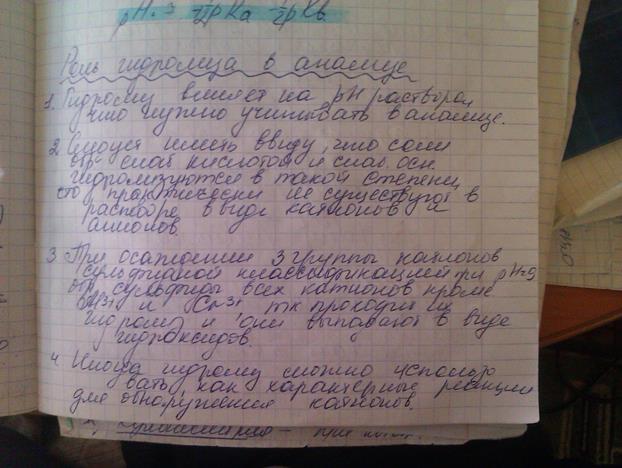 pH = 7 + 1/2 pKa - 1/2 pKb
Роль гидролиза в анализе
1. Гидролиз влияет на pH раствора,
что нужно учитывать в анализе.
2. Следует иметь ввиду, что соли
обр слаб кислотой и слаб. осн.
гидролизуются в такой степени,
что практически не существуют в
растворе в виде катионов и
анионов.
3. При осаждении 3 группы катионов
сульфидной классификацией при pH=9
обр сульфиды всех катионов кроме
Al3+ и Cr3+ тк проходит их
гидролиз и они выпадают в виде
гидроксидов.
4. Иногда гидролиз можно использо
вать как характерные реакции
для обнаружения катионов.
при